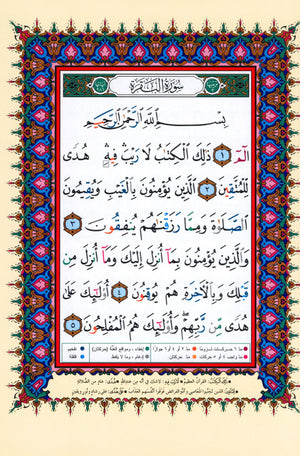 سُورَةُ الْبَقَرَةِ
بِسْمِ ٱللَّهِ ٱلرَّحْمَٰنِ ٱلرَّحِيمِ
الٓمٓ ١ ذَٰلِكَ ٱلْكِتَٰبُ لَا رَيْبَ ۛ فِيهِ ۛ هُدًى
لِّلْمُتَّقِينَ ٢ ٱلَّذِينَ يُؤْمِنُونَ بِٱلْغَيْبِ وَيُقِيمُونَ
ٱلصَّلَوٰةَ وَمِمَّا رَزَقْنَٰهُمْ يُنفِقُونَ ٣
وَٱلَّذِينَ يُؤْمِنُونَ بِمَآ أُنزِلَ إِلَيْكَ وَمَآ أُنزِلَ مِن
قَبْلِكَ وَبِٱلْءَاخِرَةِ هُمْ يُوقِنُونَ ٤ أُو۟لَٰٓئِكَ عَلَىٰ
هُدًى مِّن رَّبِّهِمْ ۖ وَأُو۟لَٰٓئِكَ هُمُ ٱلْمُفْلِحُونَ ٥